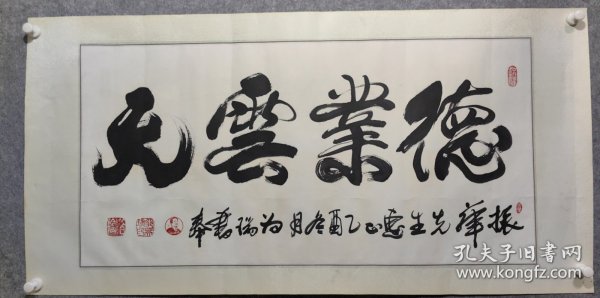 德業雲天
振華先生惠正乙酉冬月为瑞書奉
孔夫子旧书网
www.kongfz.com